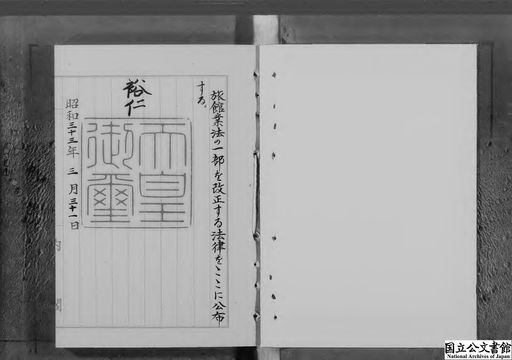 旅館業法の一部を改正する法律をここに公布
する。
裕仁
天皇
御璽
昭和三十三年三月三十一日
国立公文書館
National Archives of Japan